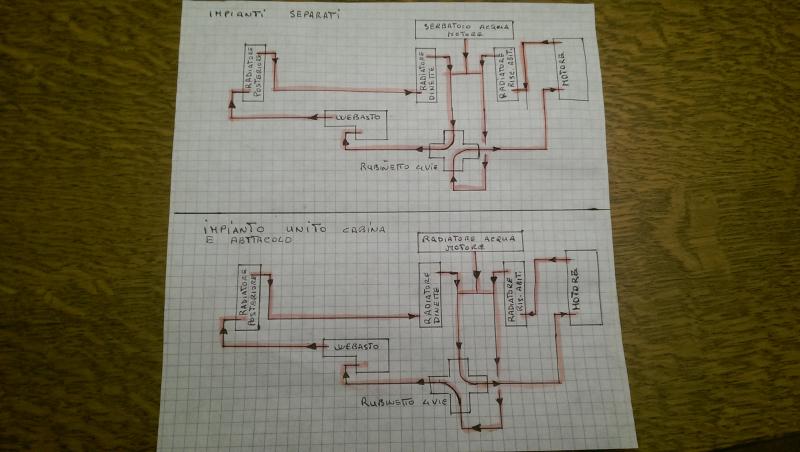 IMPIANTI SEPARATI
SERBATOIO ACQUA
MOTORE
RADIATORE
POSTERIORE
RADIATORE
DINETTE
RADIATORE
RISC. ABIT.
MOTORE
WEBASTO
RUBINETTO 4 VIE
IMPIANTO UNITO CABINA
E ABITACOLO
RADIATORE ACQUA
MOTORE
RADIATORE
POSTERIORE
RADIATORE
DINETTE
RADIATORE
RIS. ABIT.
MOTORE
WEBASTO
RUBINETTO 4 VIE